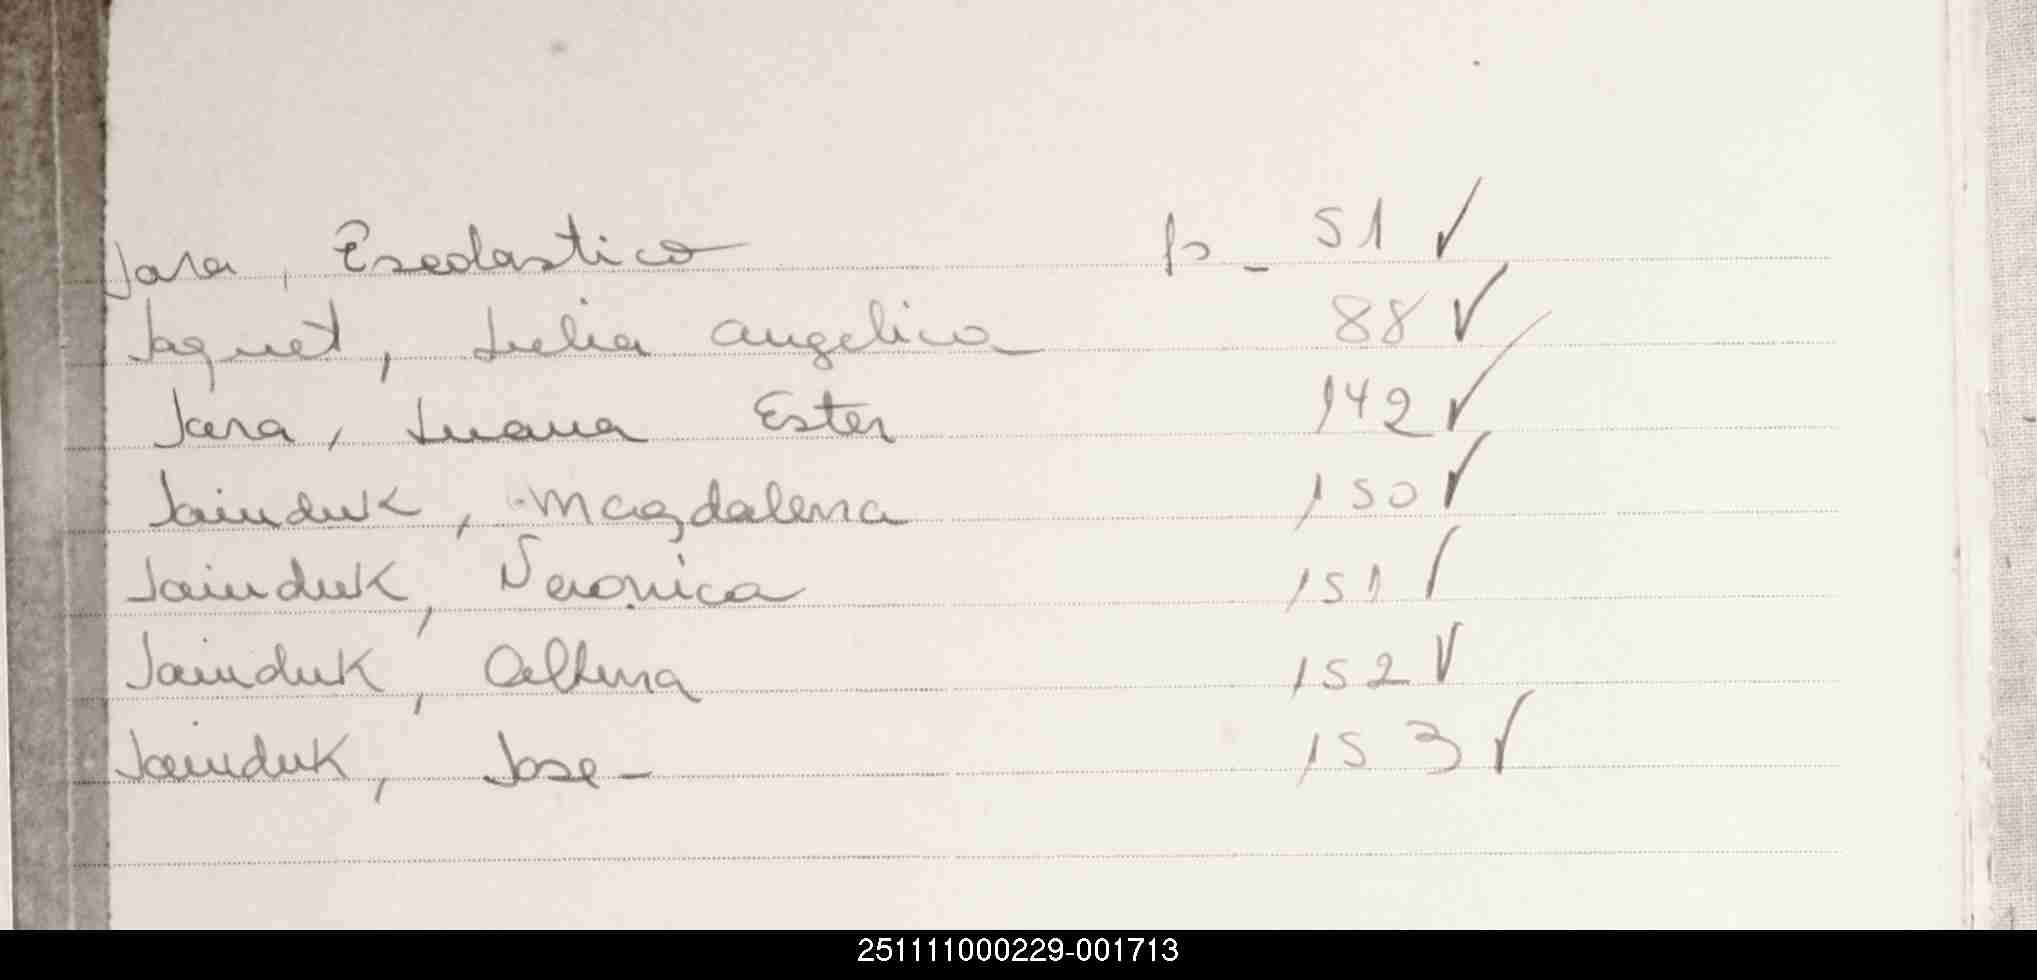 Jara, Escolastico fs - 51 ✓
Jaquet, Julia Angelica 88 ✓
Jara, Juana Ester 142 ✓
Jainduk, Magdalena 150 ✓
Jainduk, Veronica 151 ✓
Jainduk, 152 ✓
Jainduk, Jose - 153 ✓
251111000229-001713